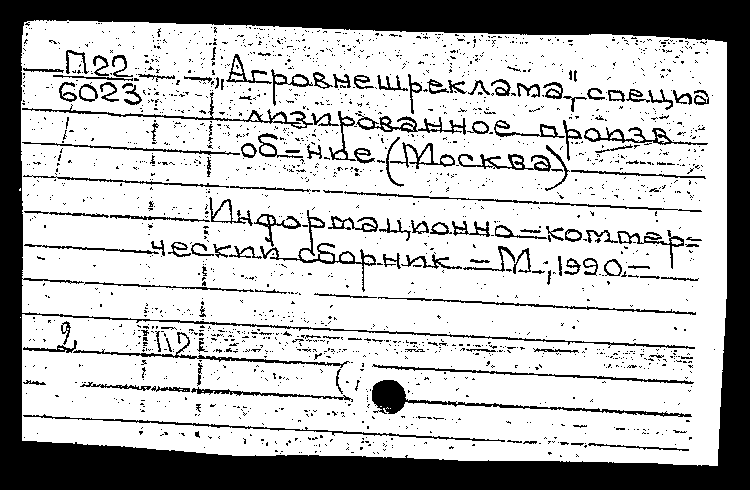 П22
6023
„Агровнешреклама", специа
лизированное произв
об-ние (Москва)
Информационно-коммер=
ческий сборник - М; 1990.-
2 ПД